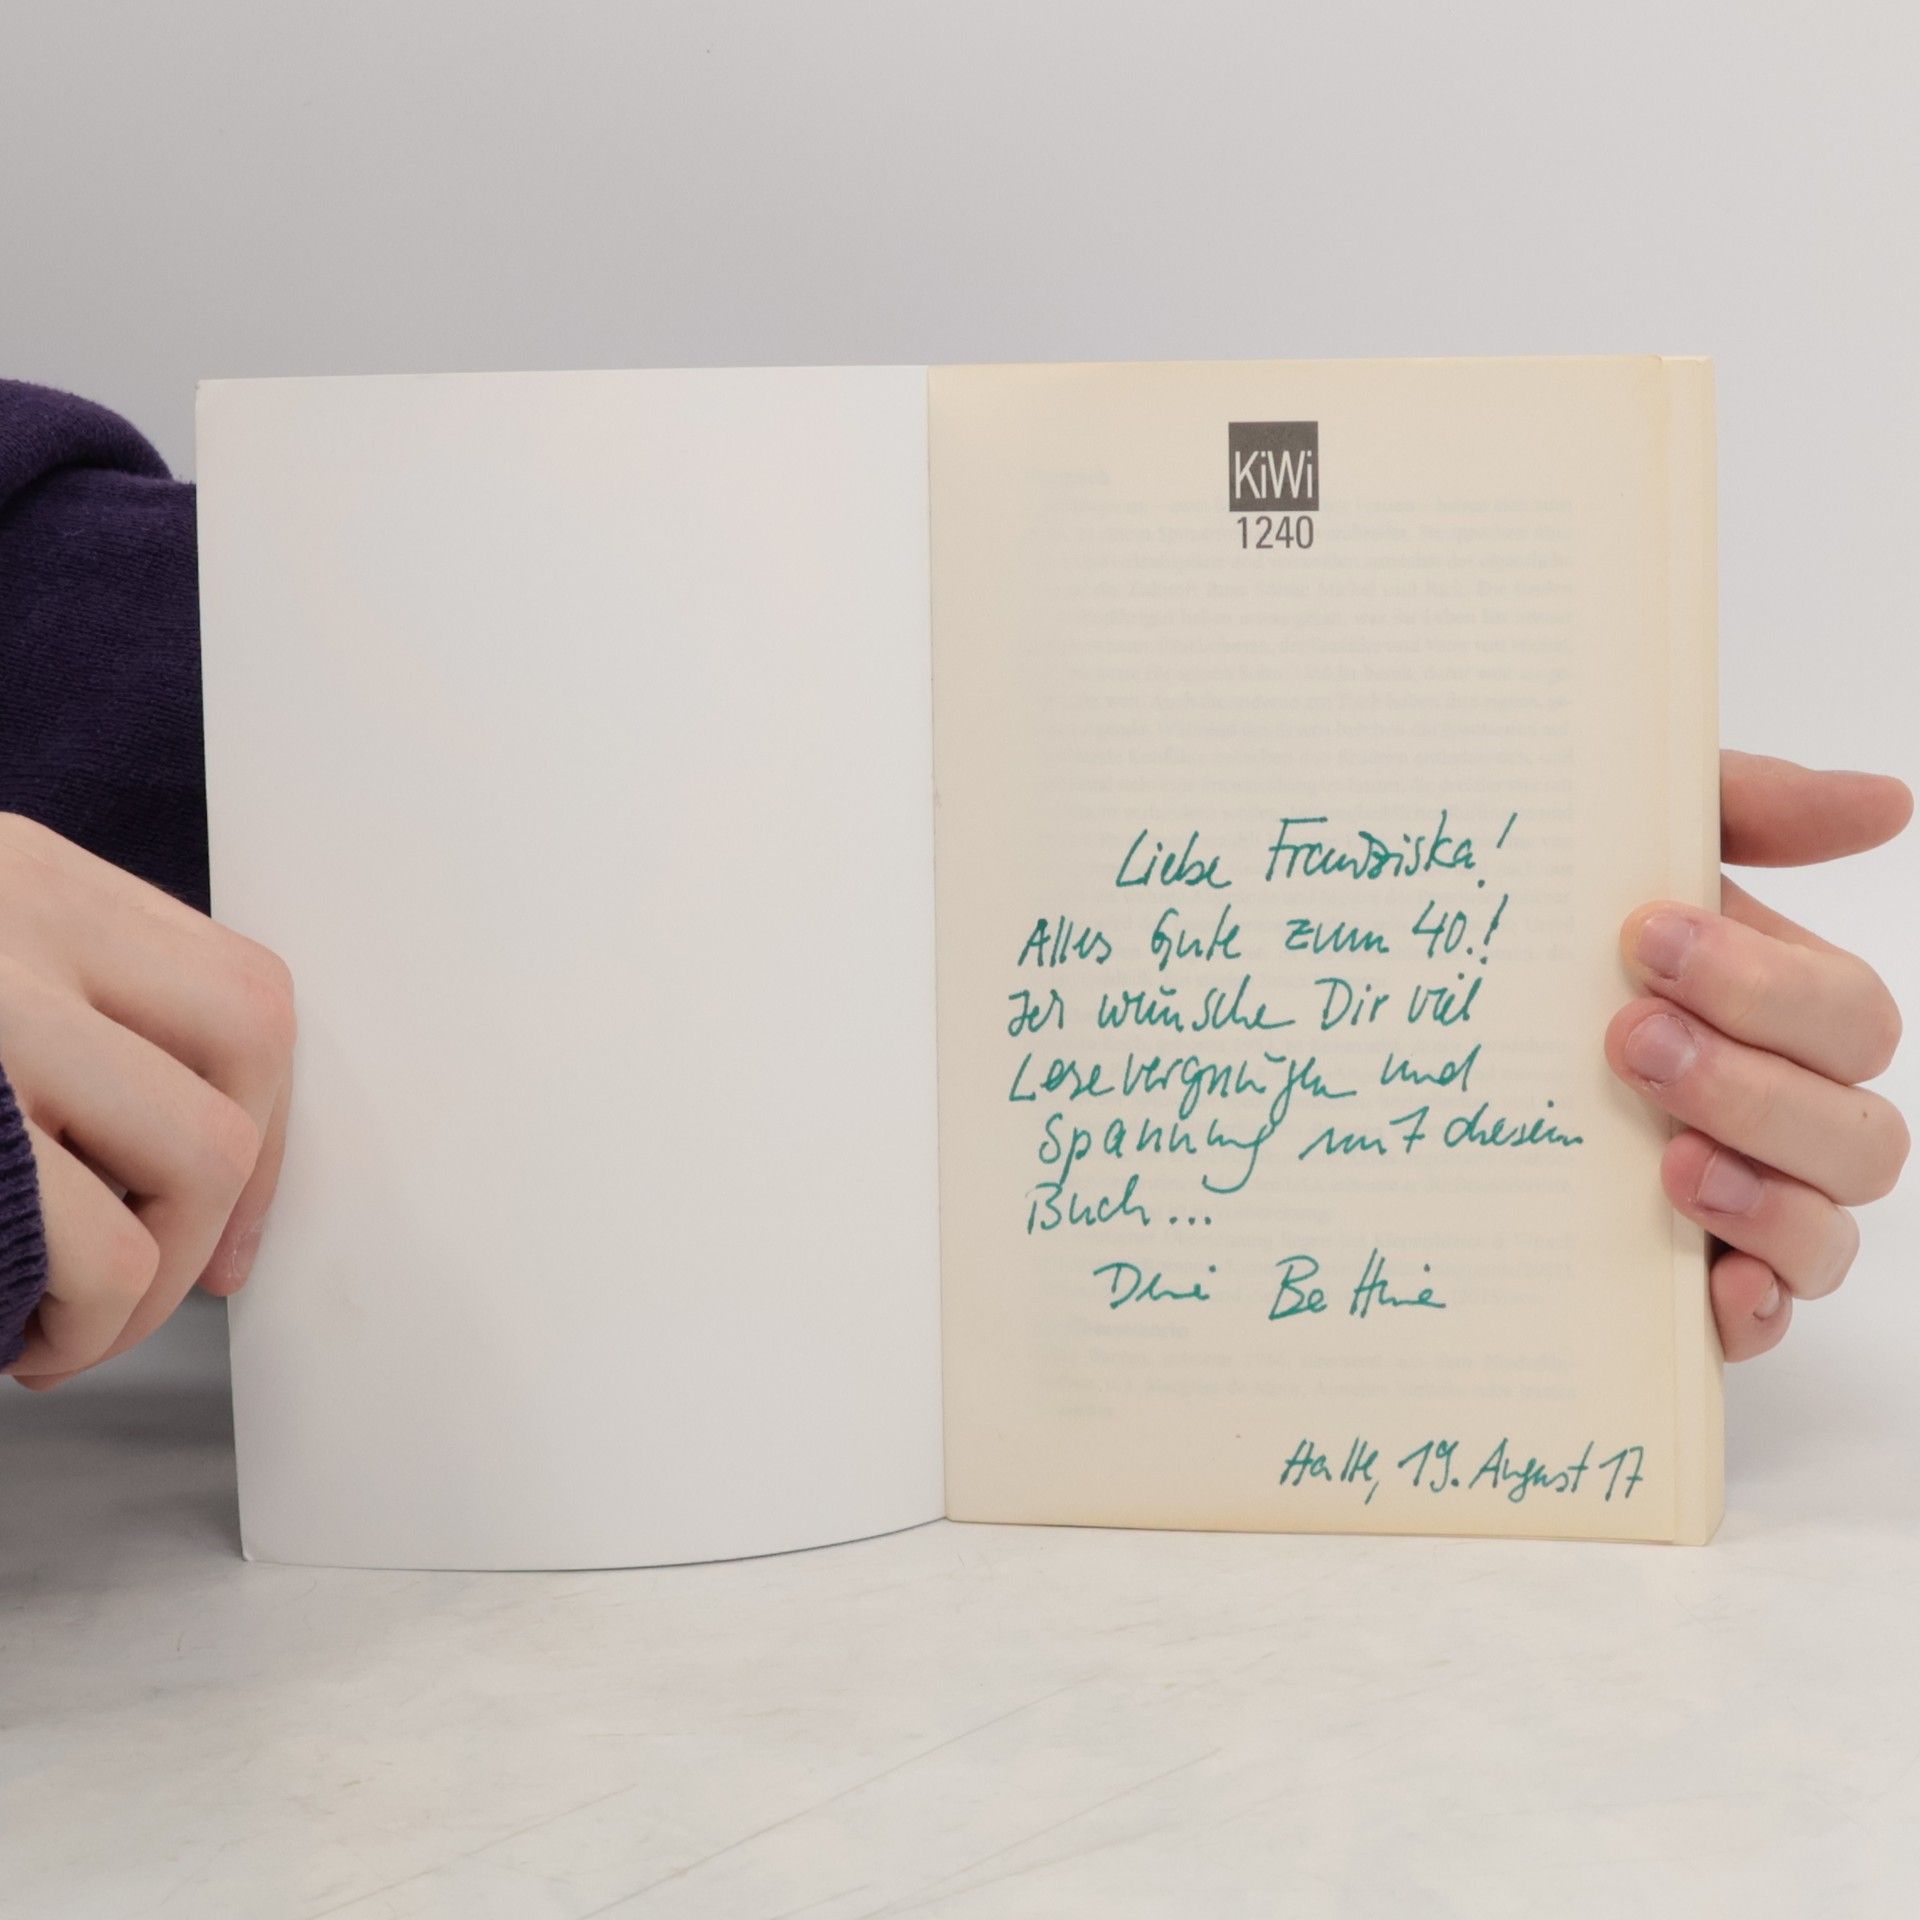 KiWi
1240
Liebe Franziska!
Alles Gute zum 40.!
Ich wünsche Dir viel
Lesevergnügen und
Spannung mit diesem
Buch...
Deine Bettina
Halle, 19. August 17